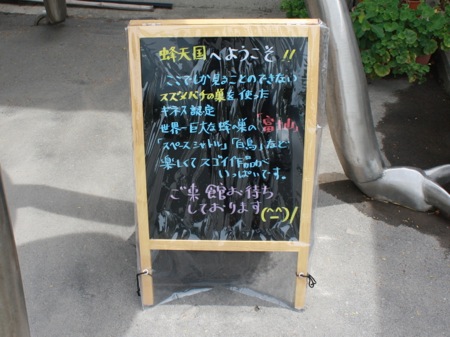 蜂天国へようこそ!!
ここでしか見ることのできない
スズメバチの巣を使った
ギネス認定
世界一巨大な蜂の巣の「富士山」
「スペースシャトル」「白鳥」など
楽しくてスゴイ作品が
いっぱいです。
ご来館お待ち
しております(^^)/